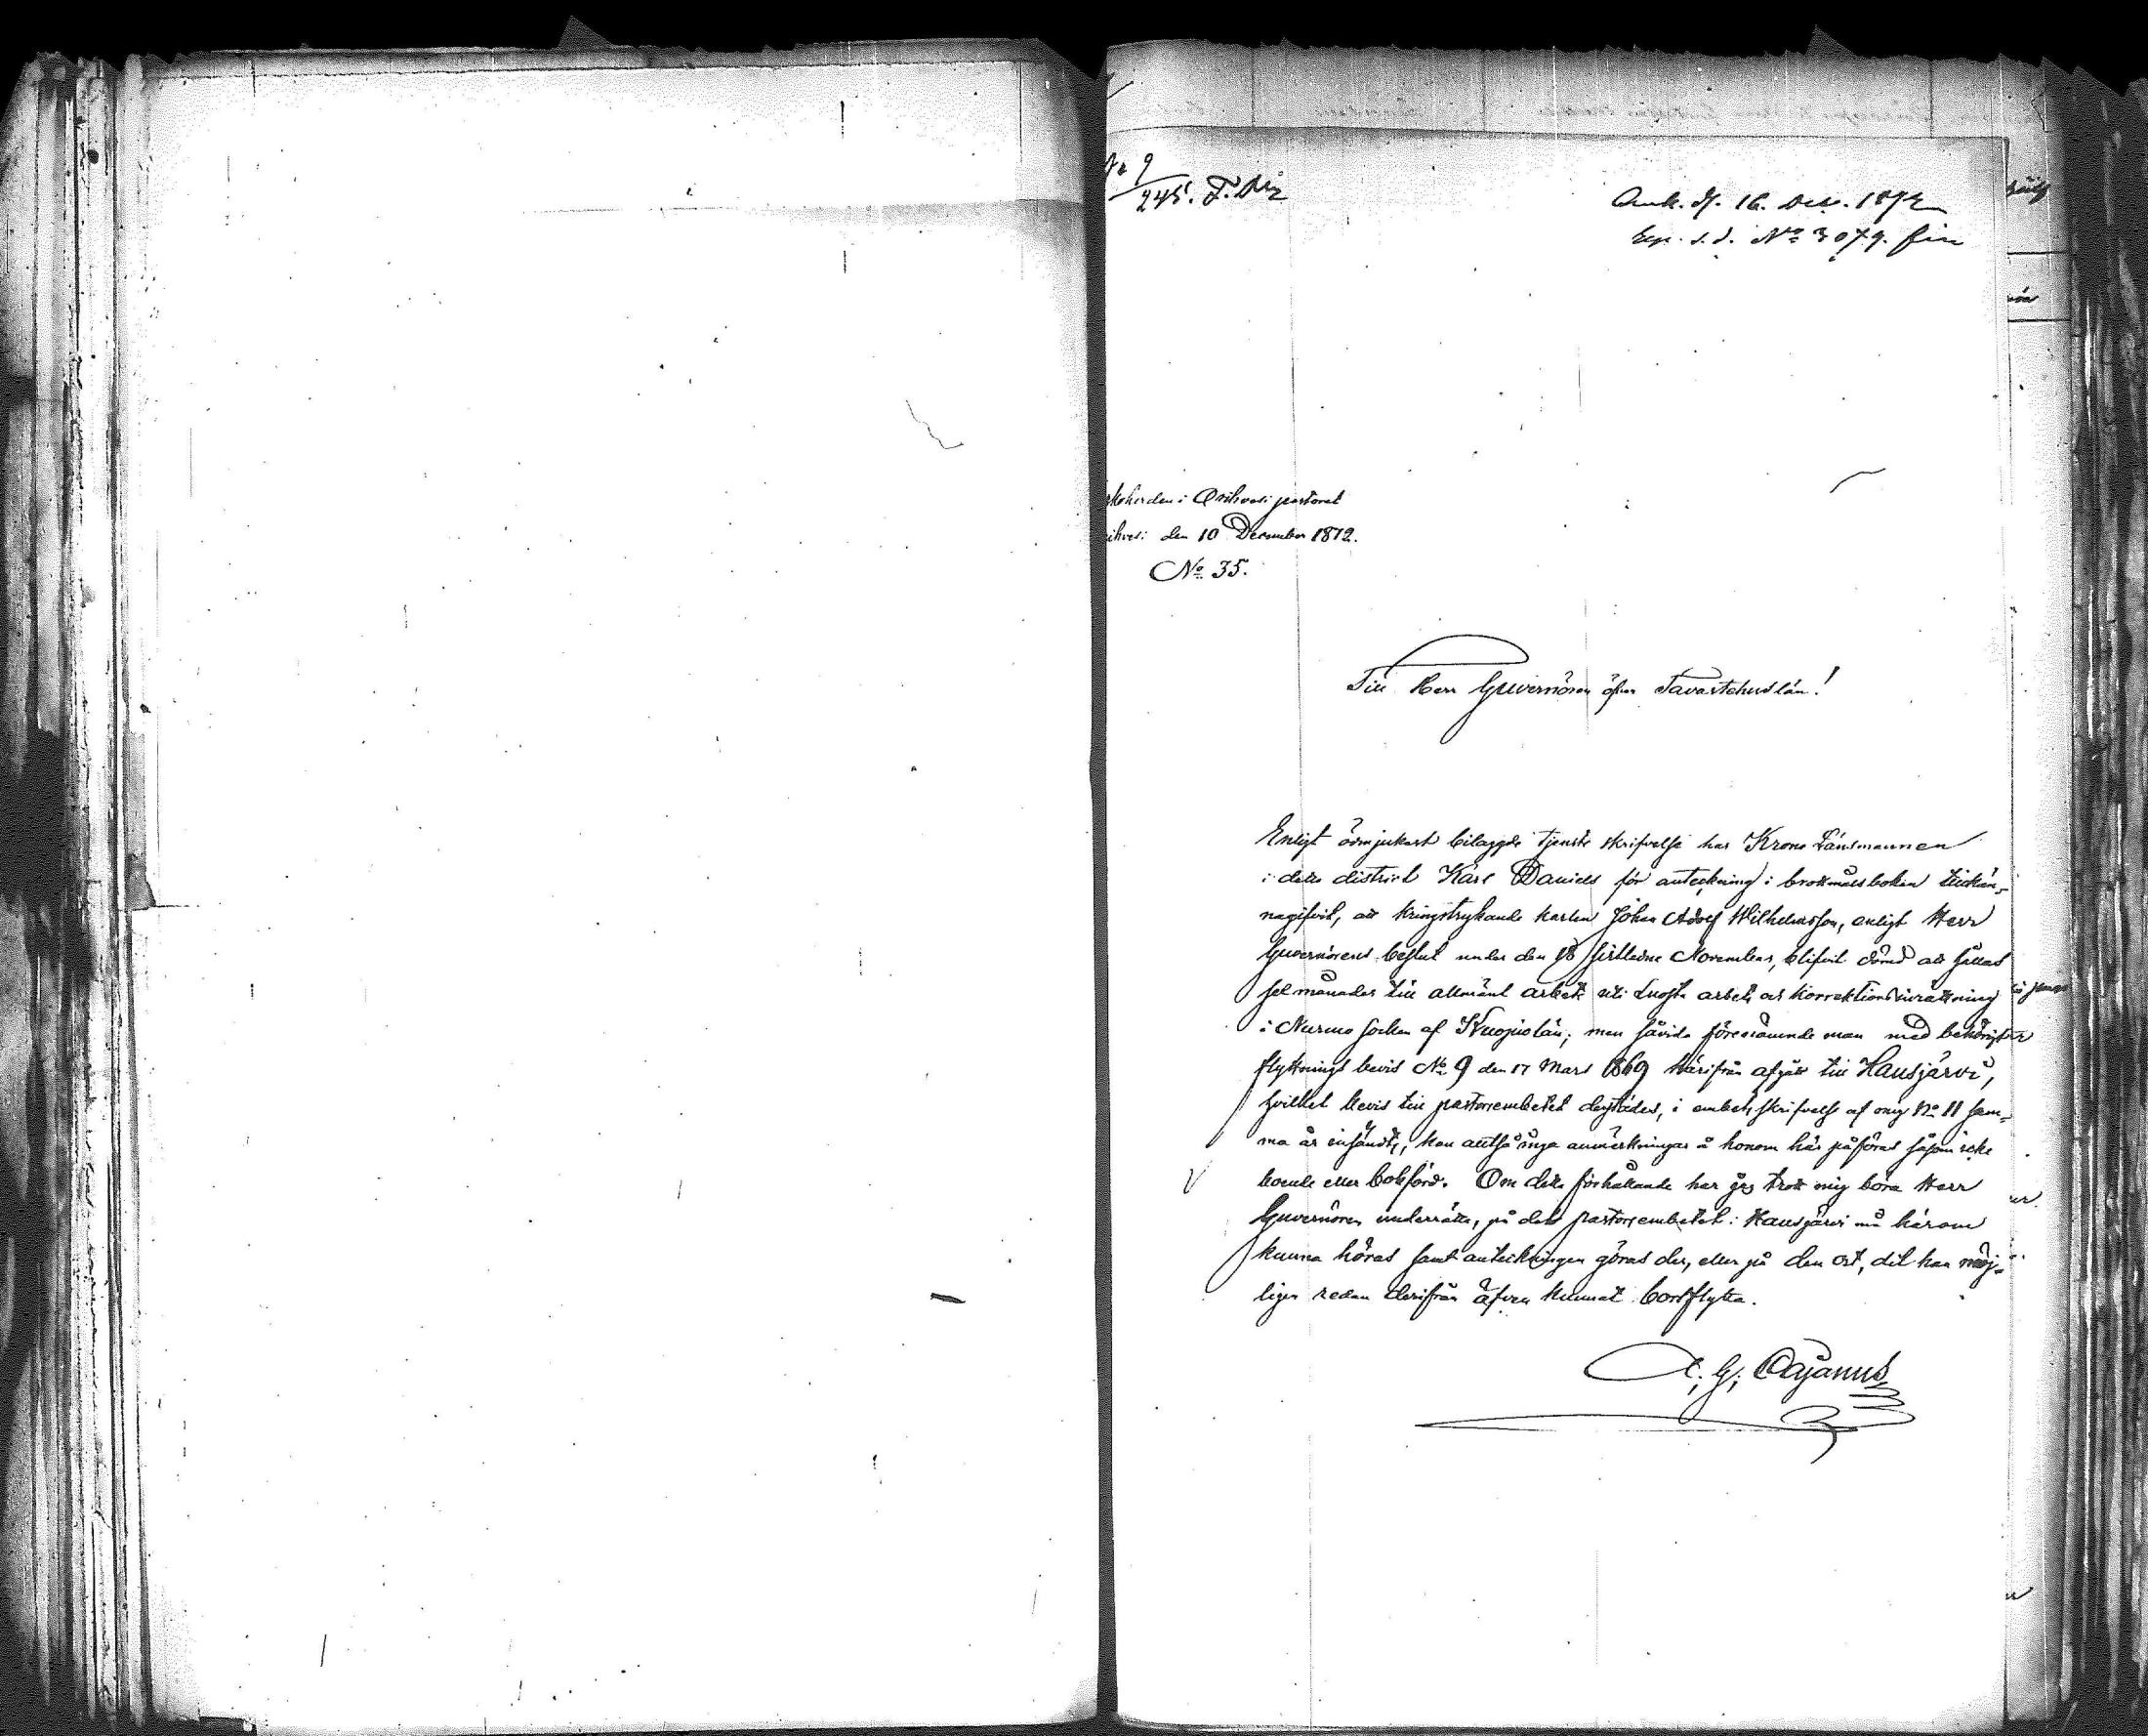 No 9
245. F. Div
Ank. d. 16. Dec. 1872
Exp. s. d. No 3079. fin
rkoherden i Orihvesi pastorat
ihvesi den 10 December 1872.
No 35.
Till Herr Guvernören öfver Tavastehus län!
Enligt ödmjukast bilaggde tjenste skrifvelse har Krono Länsmannen
i detta district Karl Daniels för anteckning i brottmålsboken tillkän-
nagifvit, att kringstrykande karlen Johan Adolf Wilhelmsson, enligt Herr
Guvernörens beslut under den 18 sistledne November, blifvit dömd att hållas
sex månader till allmänt arbete uti arbets och korrektionsinrättning
i Nurmo socken af Kuopio län; men såvida förenämnde man med behörigt
flyttnings bevis No 9 den 17 Mars 1869 härifrån afgått till Hausjärvi,
hvilket bevis till pastorsembetet derstädes, i embets skrifvelse af mig No 11 sam-
ma år insändts, kan alltså inga anmärkningar å honom här påföras såsom icke
boende eller bokförd. Om detta förhållande har jag trott mig böra Herr
Guvernören underrätta, på det pastorsembetet i Hausjärvi må härom
kunna höras samt anteckningen göras der, eller på den ort, dit han möj-
ligen redan derifrån äfven kunnat bortflytta.
A. G. Cajanus